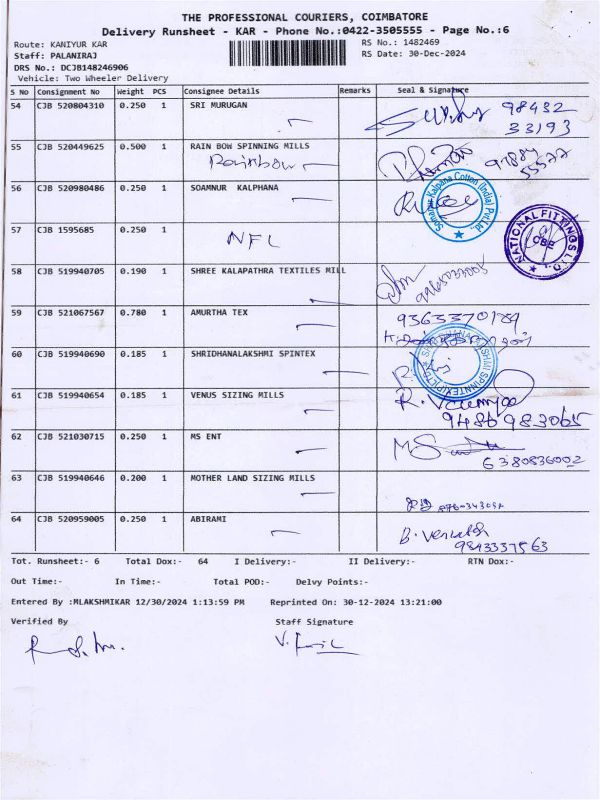 THE PROFESSIONAL COURIERS, COIMBATORE
Delivery Runsheet - KAR - Phone No.:0422-3505555 - Page No.:6
Route: KANIYUR KAR
RS No.: 1482469
Staff: PALANIRAJ
RS Date: 30-Dec-2024
DRS No.: DCJB148246906
Vehicle: Two Wheeler Delivery
S No Consignment No Weight PCS Consignee Details Remarks Seal & Signature
54 CJB 520804310 0.250 1 SRI MURUGAN 98432
33193
55 CJB 520449625 0.500 1 RAIN BOW SPINNING MILLS
Rainbow
56 CJB 520980486 0.250 1 SOAMNUR KALPHANA
Somanur Kalpana Cotton (India) Pvt Ltd.
57 CJB 1595685 0.250 1
NFL
NATIONAL FITTINGS LTD.
CBE
58 CJB 519940705 0.190 1 SHREE KALAPATHRA TEXTILES MILL
59 CJB 521067567 0.780 1 AMURTHA TEX 9363370189
60 CJB 519940690 0.185 1 SHRIDHANALAKSHMI SPINTEX
61 CJB 519940654 0.185 1 VENUS SIZING MILLS
9486983065
62 CJB 521030715 0.250 1 MS ENT MS
6380836002
63 CJB 519940646 0.200 1 MOTHER LAND SIZING MILLS
64 CJB 520959005 0.250 1 ABIRAMI B. Venkatesh
9843337563
Tot. Runsheet:- 6 Total Dox:- 64 I Delivery:- II Delivery:- RTN Dox:-
Out Time:- In Time:- Total POD:- Delvy Points:-
Entered By :MLAKSHMIKAR 12/30/2024 1:13:59 PM Reprinted On: 30-12-2024 13:21:00
Verified By Staff Signature